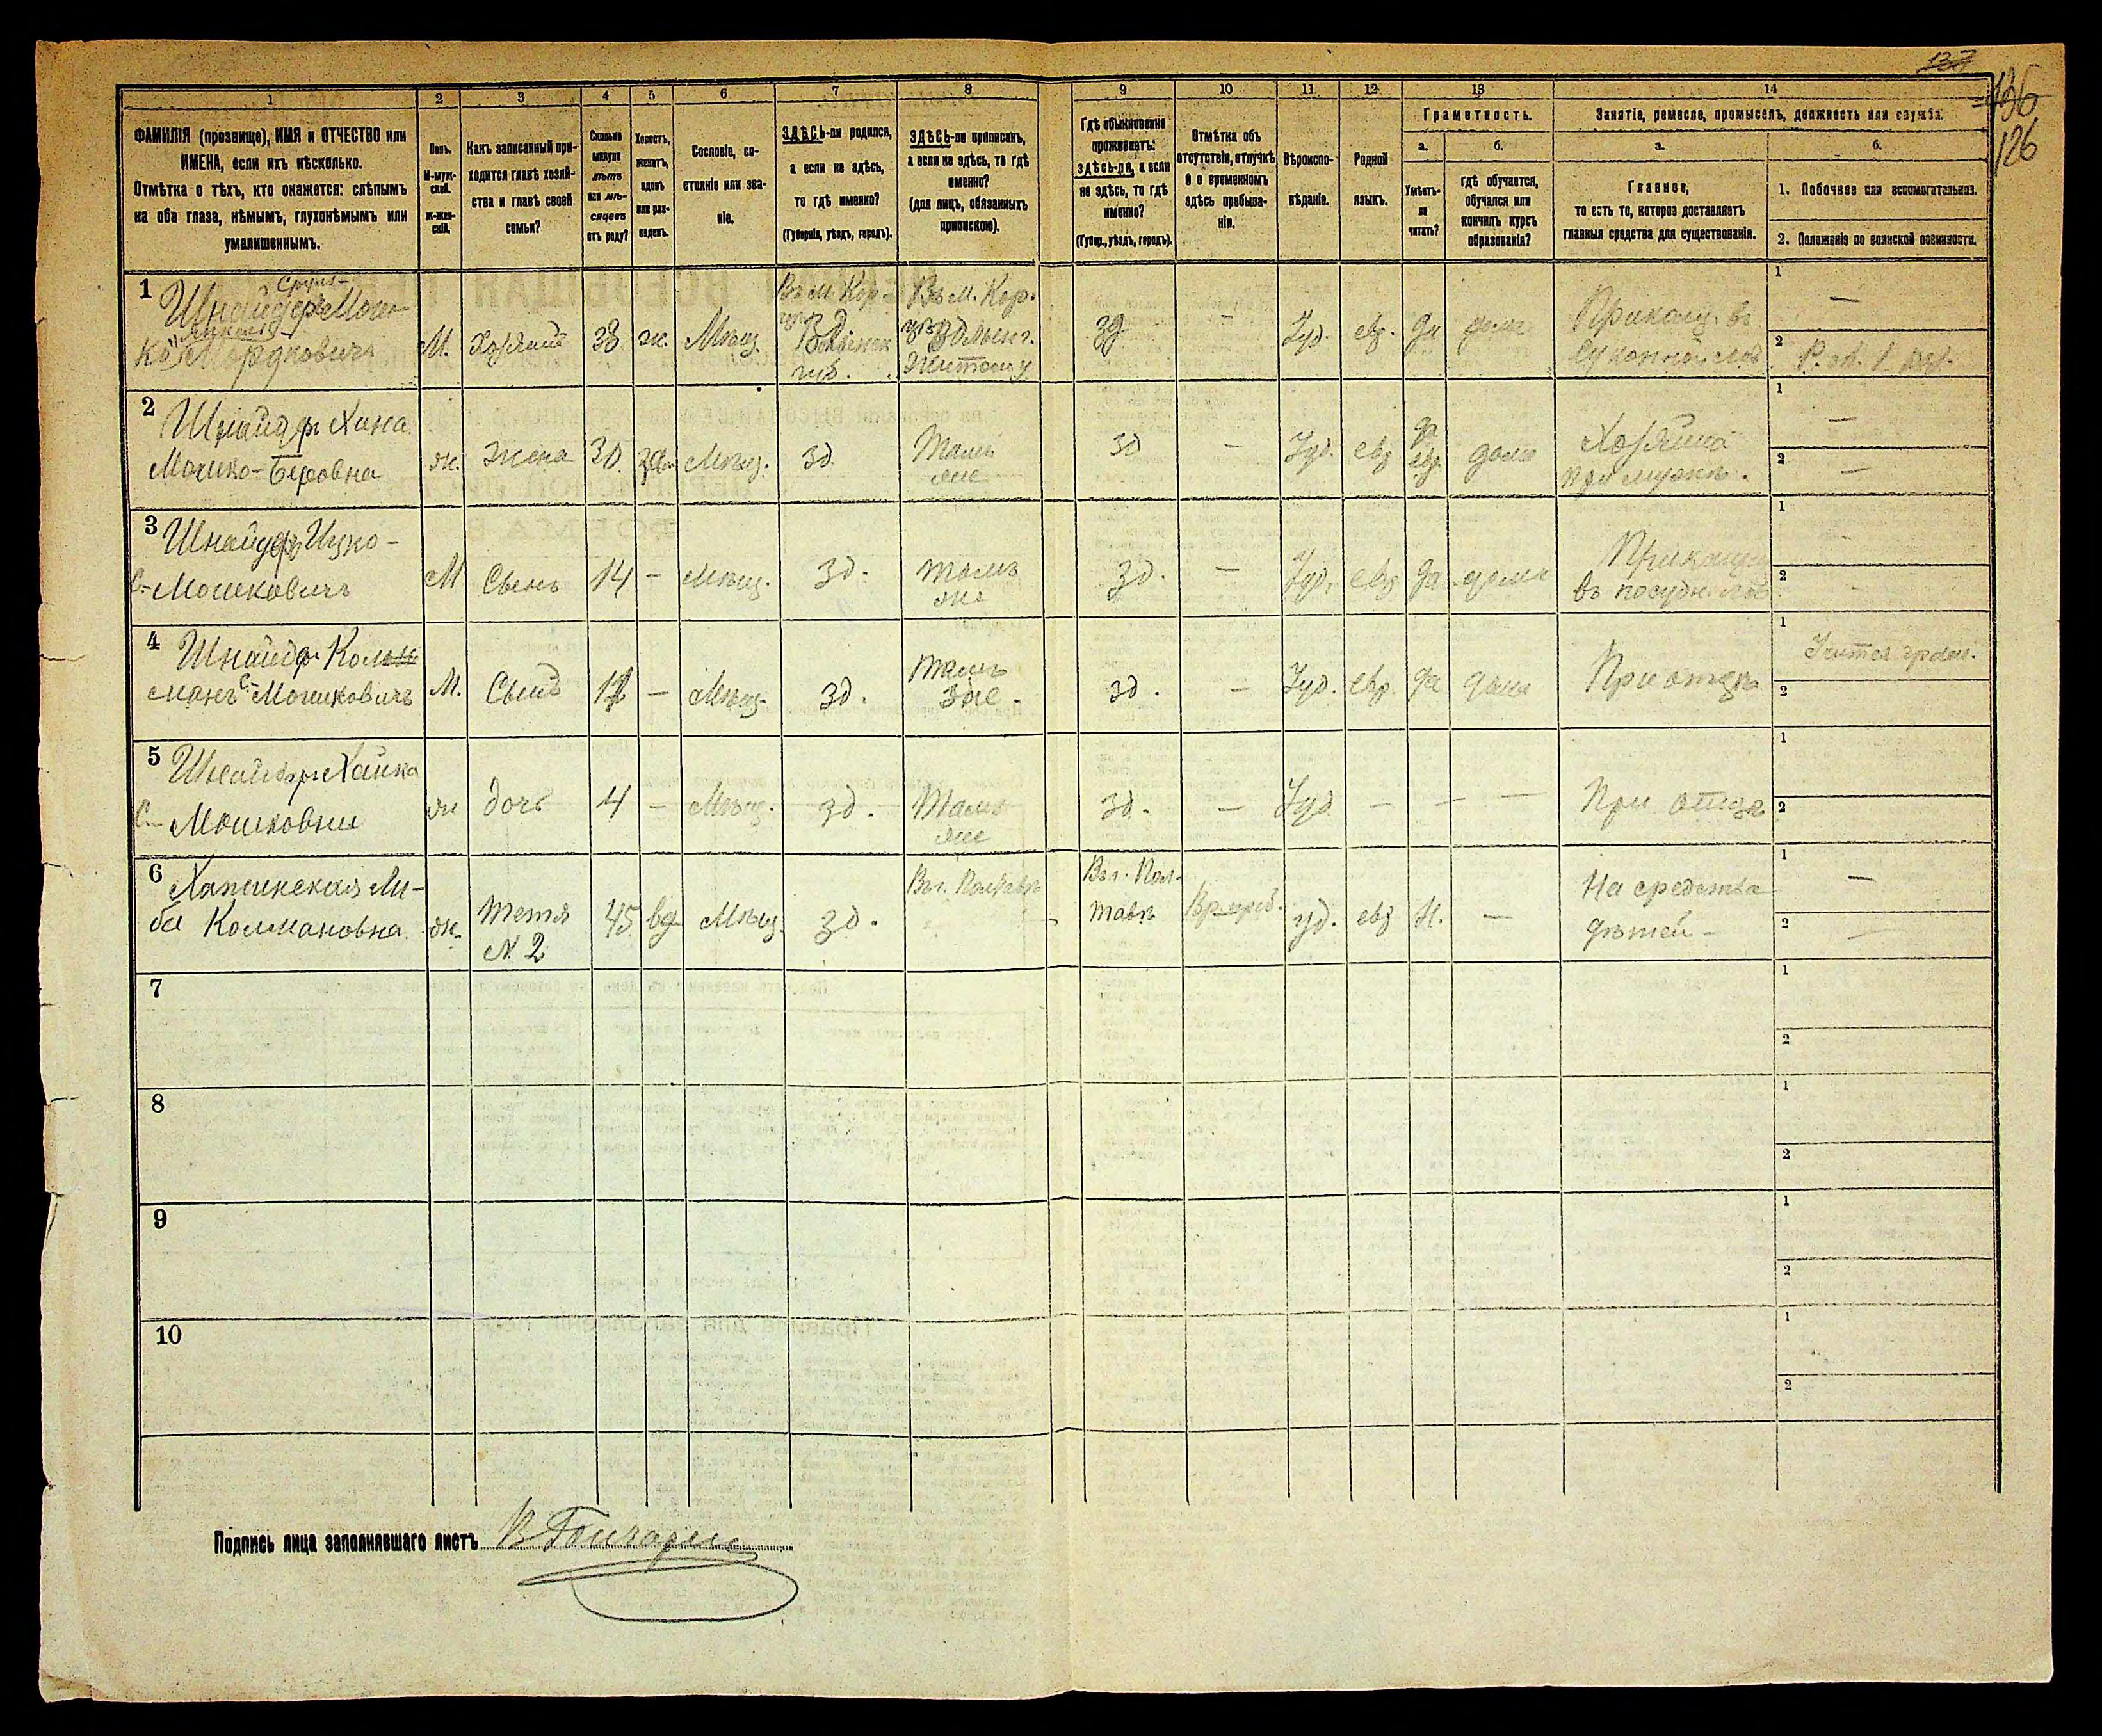 137
136
126
1
2
3
4
5
6
7
8
9
10
11
12
13
14
ФАМИЛІЯ (прозвище), ИМЯ и ОТЧЕСТВО или
ИМЕНА, если ихъ нѣсколько.
Отмѣтка о тѣхъ, кто окажется: слѣпымъ
на оба глаза, нѣмымъ, глухонѣмымъ или
умалишеннымъ.
Полъ.
М-муж-
ской.
ж-жен-
скій.
Какъ записанный при-
ходится главѣ хозяй-
ства и главѣ своей
семьи?
Сколько
минуло
лѣтъ
или мѣ-
сяцевъ
отъ роду?
Холостъ,
женатъ,
вдовъ
или раз-
веденъ.
Сословіе, со-
стояніе или зва-
ніе.
ЗДѢСЬ-ли родился,
а если не здѣсь,
то гдѣ именно?
(Губернія, уѣздъ, городъ).
ЗДѢСЬ-ли приписанъ,
а если не здѣсь, то гдѣ
именно?
(для лицъ, обязанныхъ
припискою).
Гдѣ обыкновенно
проживаетъ:
здѣсь-ли, а если
не здѣсь, то гдѣ
именно?
(Губер., уѣздъ, городъ).
Отмѣтка объ
отсутствіи, отлучкѣ
и о временномъ
здѣсь пребыва-
ніи.
Вѣроиспо-
вѣданіе.
Родной
языкъ.
Грамотность.
а.
Умѣетъ-
ли
читать?
б.
гдѣ обучается,
обучался или
кончилъ курсъ
образованія?
Занятіе, ремесло, промыселъ, должность или служба.
а.
Главное,
то есть то, которое доставляетъ
главныя средства для существованія.
б.
1. Побочное или вспомогательное.
2. Положеніе по воинской повинности.
1
Сруль-
Шнайдеръ Мош-
ко Мордковичъ
М.
Хозяинъ
38
ж.
Мѣщ.
Въ м. Кор-
цѣ Волынск
губ.
Въ м. Кор-
цѣ Волынг.
зд
-
Іуд.
евр.
да
дома
Приказщ. въ
суконной лав
1
-
2
2
Шнайдеръ Хана
Мошко-Беровна
ж.
жена
30
зам
Мѣщ.
зд.
Тамъ
же
зд
-
Іуд.
евр
да
евр
дома
Хозяйка
при мужѣ.
1
-
2
-
3
Шнайдеръ Ицко-
С-Мошковичъ
М
Сынъ
14
-
Мѣщ.
зд.
тамъ
же
зд.
-
Іуд.
евр
да
дома
Приказщ
въ посудн. лав
1
-
2
-
4
Шнайдер Коль
манъ С-Мошковичъ
М.
Сынъ
12
-
Мѣщ.
зд.
тамъ
же.
зд.
-
Іуд.
евр.
да
дома
При отцѣ
1
2
5
Шнайдеръ Хайка
С- Мошковна
ж
дочь
4
-
Мѣщ.
зд.
Тамъ
же
зд.
-
Іуд
-
-
-
При отцѣ
1
2
6
Ли-
ба Колмановна
ж.
тетя
N. 2
45
вд
Мѣщ.
зд.
Въ г. Полтавѣ
Въ г. Пол-
тавѣ
Вр. преб.
іуд.
евр
Н.
-
На средства
дѣтей-
1
-
2
-
7
1
2
8
1
2
9
1
2
10
1
2
Подпись лица заполнявшаго листъ